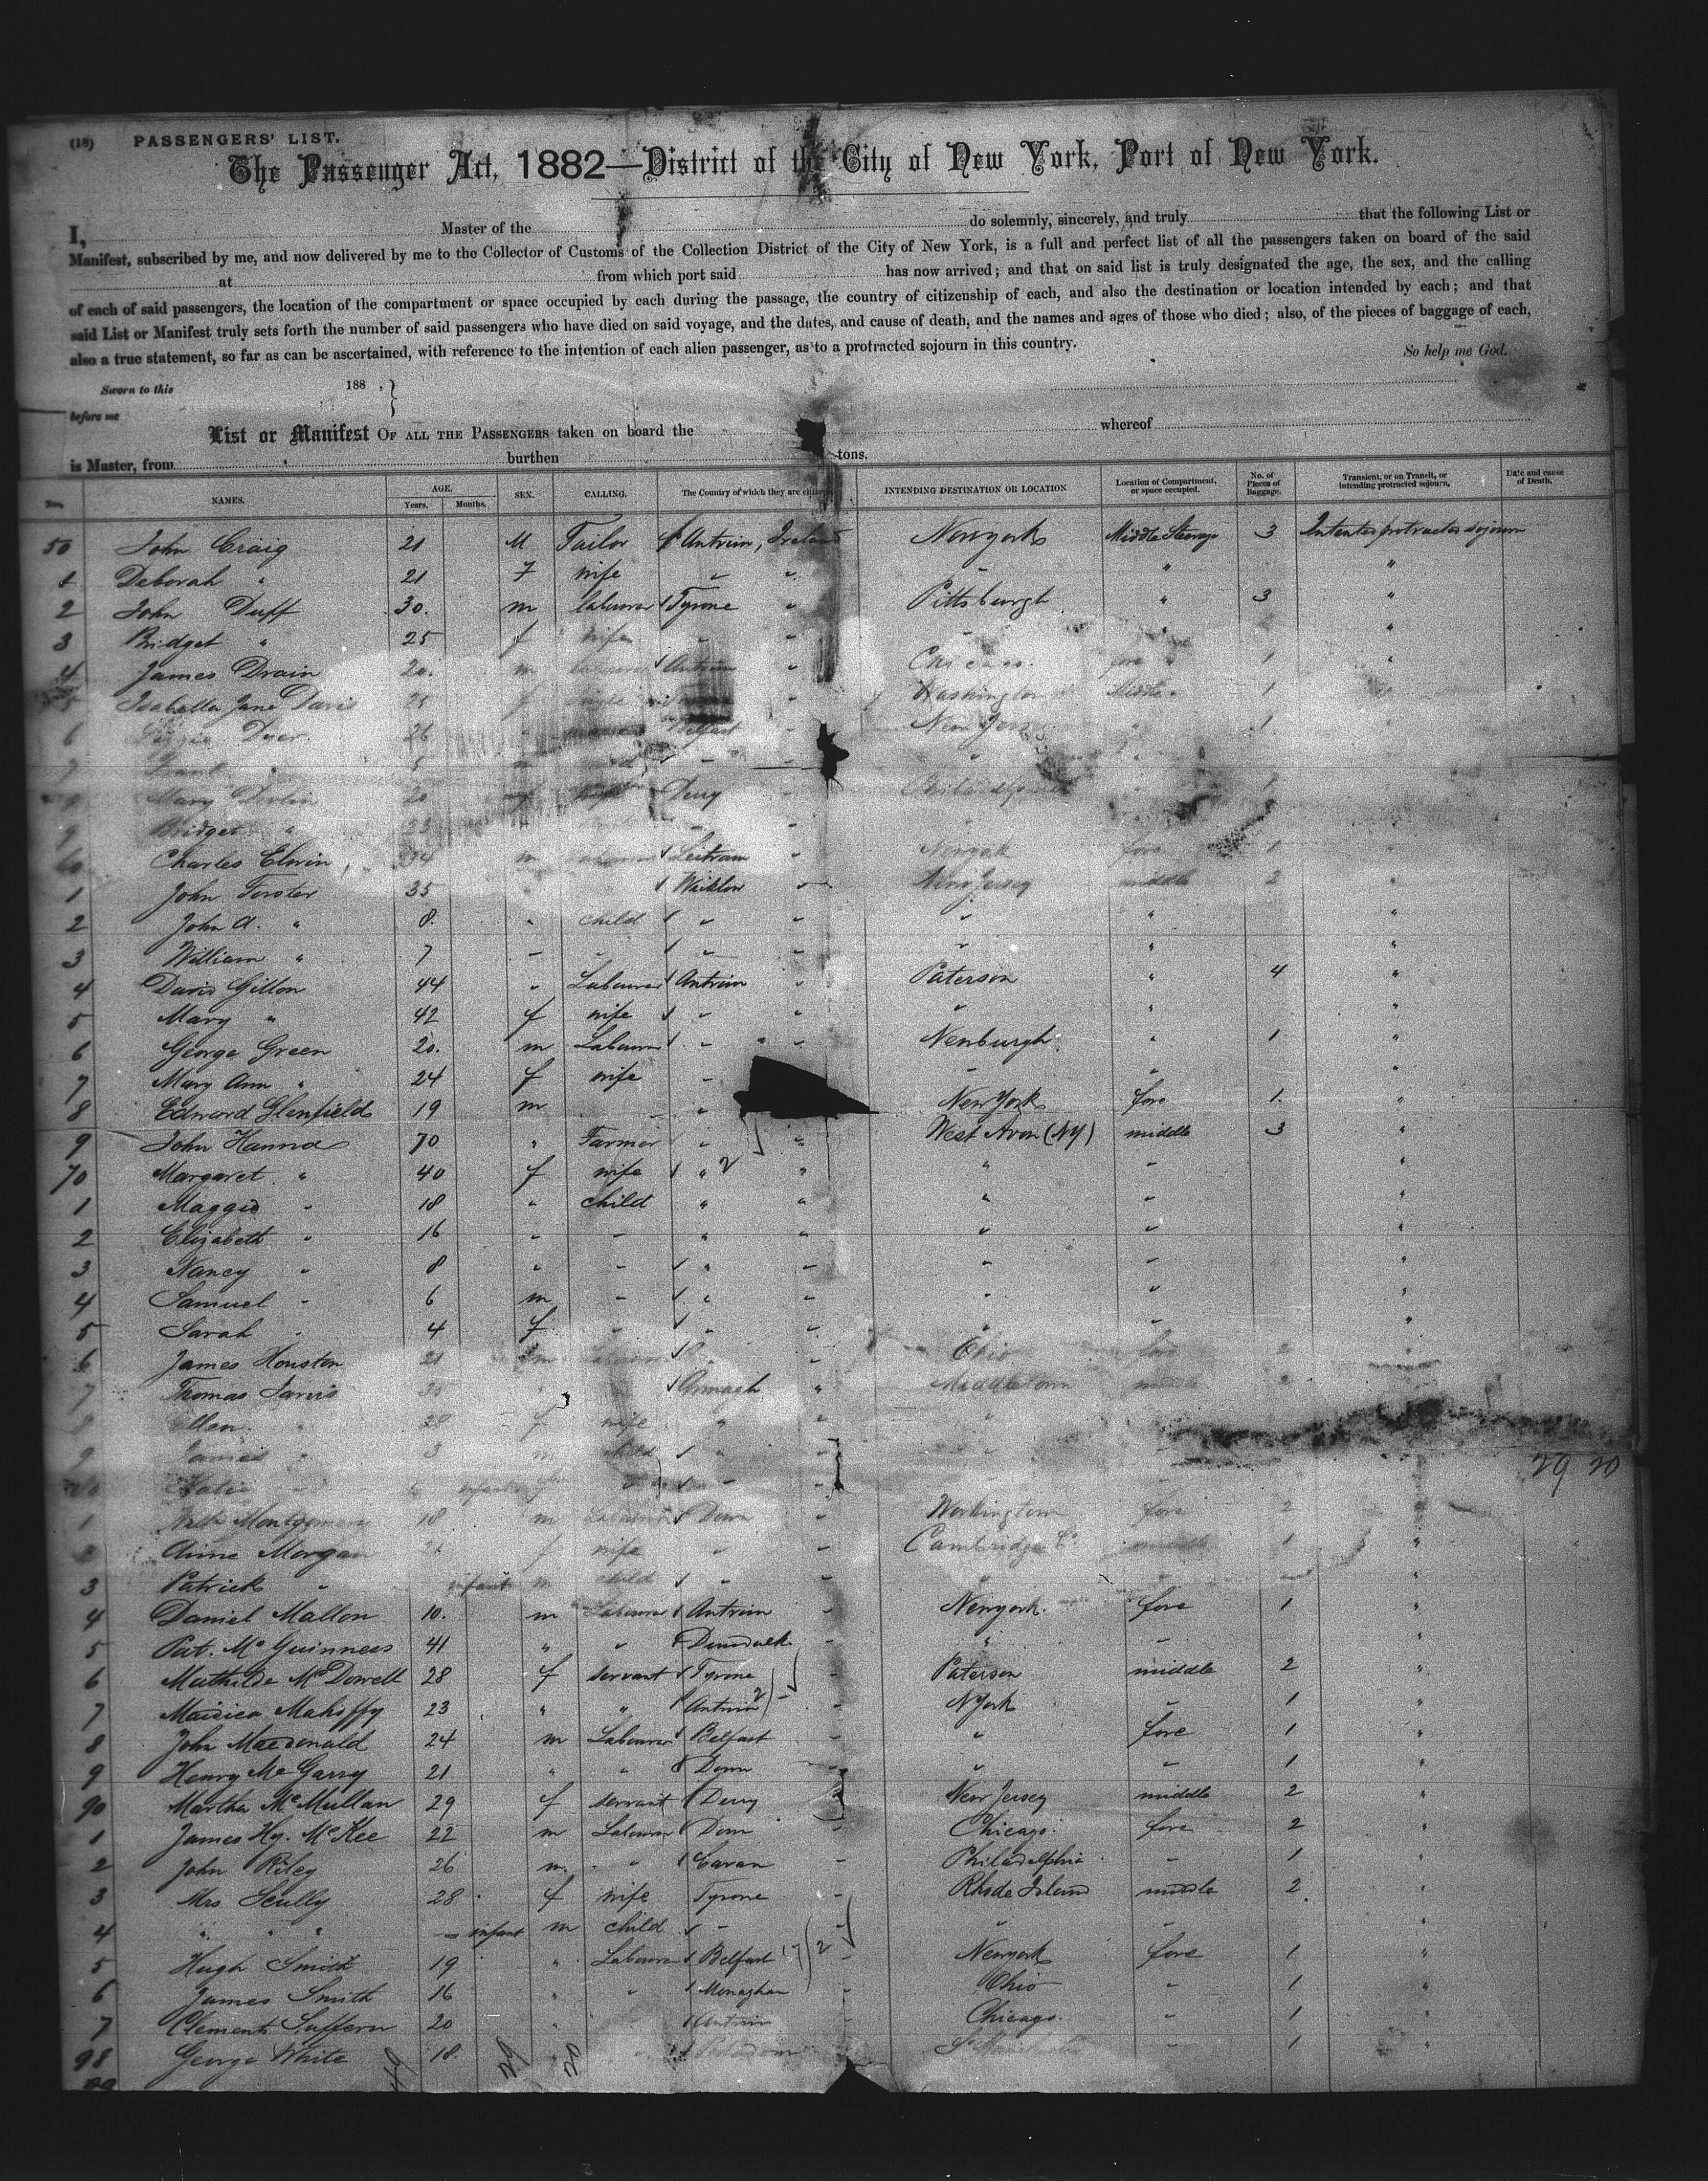 (18) PASSENGERS' LIST.
The Passenger Act, 1882—District of the City of New York, Port of New York.
I, Master of the do solemnly, sincerely, and truly that the following List or
Manifest, subscribed by me, and now delivered by me to the Collector of Customs of the Collection District of the City of New York, is a full and perfect list of all the passengers taken on board of the said
at from which port said has now arrived; and that on said list is truly designated the age, the sex, and the calling
of each of said passengers, the location of the compartment or space occupied by each during the passage, the country of citizenship of each, and also the destination or location intended by each; and that
said List or Manifest truly sets forth the number of said passengers who have died on said voyage, and the dates, and cause of death, and the names and ages of those who died; also, of the pieces of baggage of each,
also a true statement, so far as can be ascertained, with reference to the intention of each alien passenger, as to a protracted sojourn in this country. So help me God.
Sworn to this 188 , }
before me
List or Manifest OF ALL THE PASSENGERS taken on board the whereof
is Master, from burthen tons.
Nos. NAMES. AGE. Years. Months. SEX. CALLING. The Country of which they are INTENDING DESTINATION OR LOCATION Location of Compartment, or space occupied. No. of Pieces of Baggage. Transient, or on Transit, or intending protracted sojourn. Date and cause of Death.
50 John Craig 21 M Tailor Antrim, Ireland Newyork Middle Steerage 3 Intents protracted sojourn
1 Deborah " 21 F wife " " " " "
2 John Duff 30. m labourer Tyrone " Pittsburgh " 3 "
3 Bridget " 25 f wife " " " " "
4 James Drain 20. m labourer Antrim " Chicago. fore 1 "
5 Isabella Jane Davis 25 f " Washington Middle 1
6 Dyer 26 Belfast " New York " 1
7 "
Mary Devlin 20 f Derry " Philadelphia 1
9 Bridget " 23 "
60 Charles Elwin 24 m labourer Leitrim " Newyork fore 1 "
1 John Forster 35 " Wicklow " New Jersey middle 2 "
2 John A. " 8. " child " " " " "
3 William " 7 " " " " " " "
4 David Gillon 44 " Labourer Antrim " Paterson " 4 "
5 Mary " 42 f wife " " " " "
6 George Green 20. m Labourer " " Newburgh " 1 "
7 Mary Ann " 24 f wife " " " "
8 Edward Glenfield 19 m " New York fore 1. "
9 John Hanna 70 " Farmer " " West Avon (NY) middle 3 "
70 Margaret " 40 f wife " " " " "
1 Maggie " 18 " child " " " " "
2 Elizabeth " 16 " " " " " " "
3 Nancy " 8 " " " " " " "
4 Samuel " 6 m " " " " " "
5 Sarah " 4 f " " " " " "
6 James Houston 21 m " Ohio fore 2 "
7 Thomas Jarvis 30 " Armagh " Middletown middle 2
8 Ellen " 28 f wife " " "
9 James " 3 m child " " "
Katie " infant f " " 29 20
1 Montgomery 18 m Labourer Down " Workington fore 2 "
Anne Morgan f wife " " Cambridge Co. middle 1 "
3 Patrick " infant m child " " " " "
4 Daniel Mallon 10. m Labourer Antrim " Newyork. fore 1 "
5 Pat. McGuinness 41 " " Dundalk " " " "
6 Mathilde McDowell 28 f servant Tyrone " Paterson middle 2 "
7 Mahaffy 23 " " Antrim " NYork " 1 "
8 John Macdonald 24 m Labourer Belfast " " fore 1 "
9 Henry McGarry 21 " " Down " " " 1 "
90 Martha McMullan 29 f servant Derry New Jersey middle 2 "
1 James Hy. McKee 22 m Labourer Down " Chicago. fore 2 "
2 John Riley 26 m. " Cavan " Philadelphia " 1 "
3 Mrs Scully 28 f wife Tyrone " Rhode Island middle 2 "
4 " " " infant m child " " " " "
5 Hugh Smith 19 " Labourer Belfast " Newyork fore 1 "
6 James Smith 16 " " Monaghan " Ohio " 1 "
7 Clements Suffern 20 " " Antrim " Chicago. " 1 "
98 George White 18. " " " 1 "
29 20